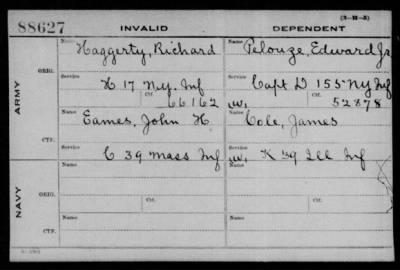 88627 INVALID DEPENDENT (3-H-5)
ARMY
ORIG.
Name Haggerty, Richard
Name Pelouze, Edward Jr
Service H 17 N.Y. Inf
Service Capt D 155 NY Inf
Ctf. 66162
W, Ctf. 52878
CTF.
Name Eames, John H
Name Cole, James
Service C 39 Mass Inf
Service W, K 39 Ill Inf
NAVY
ORIG.
Name
Name
Service Ctf.
Service Ctf.
CTF.
Name
Name
Service
Service